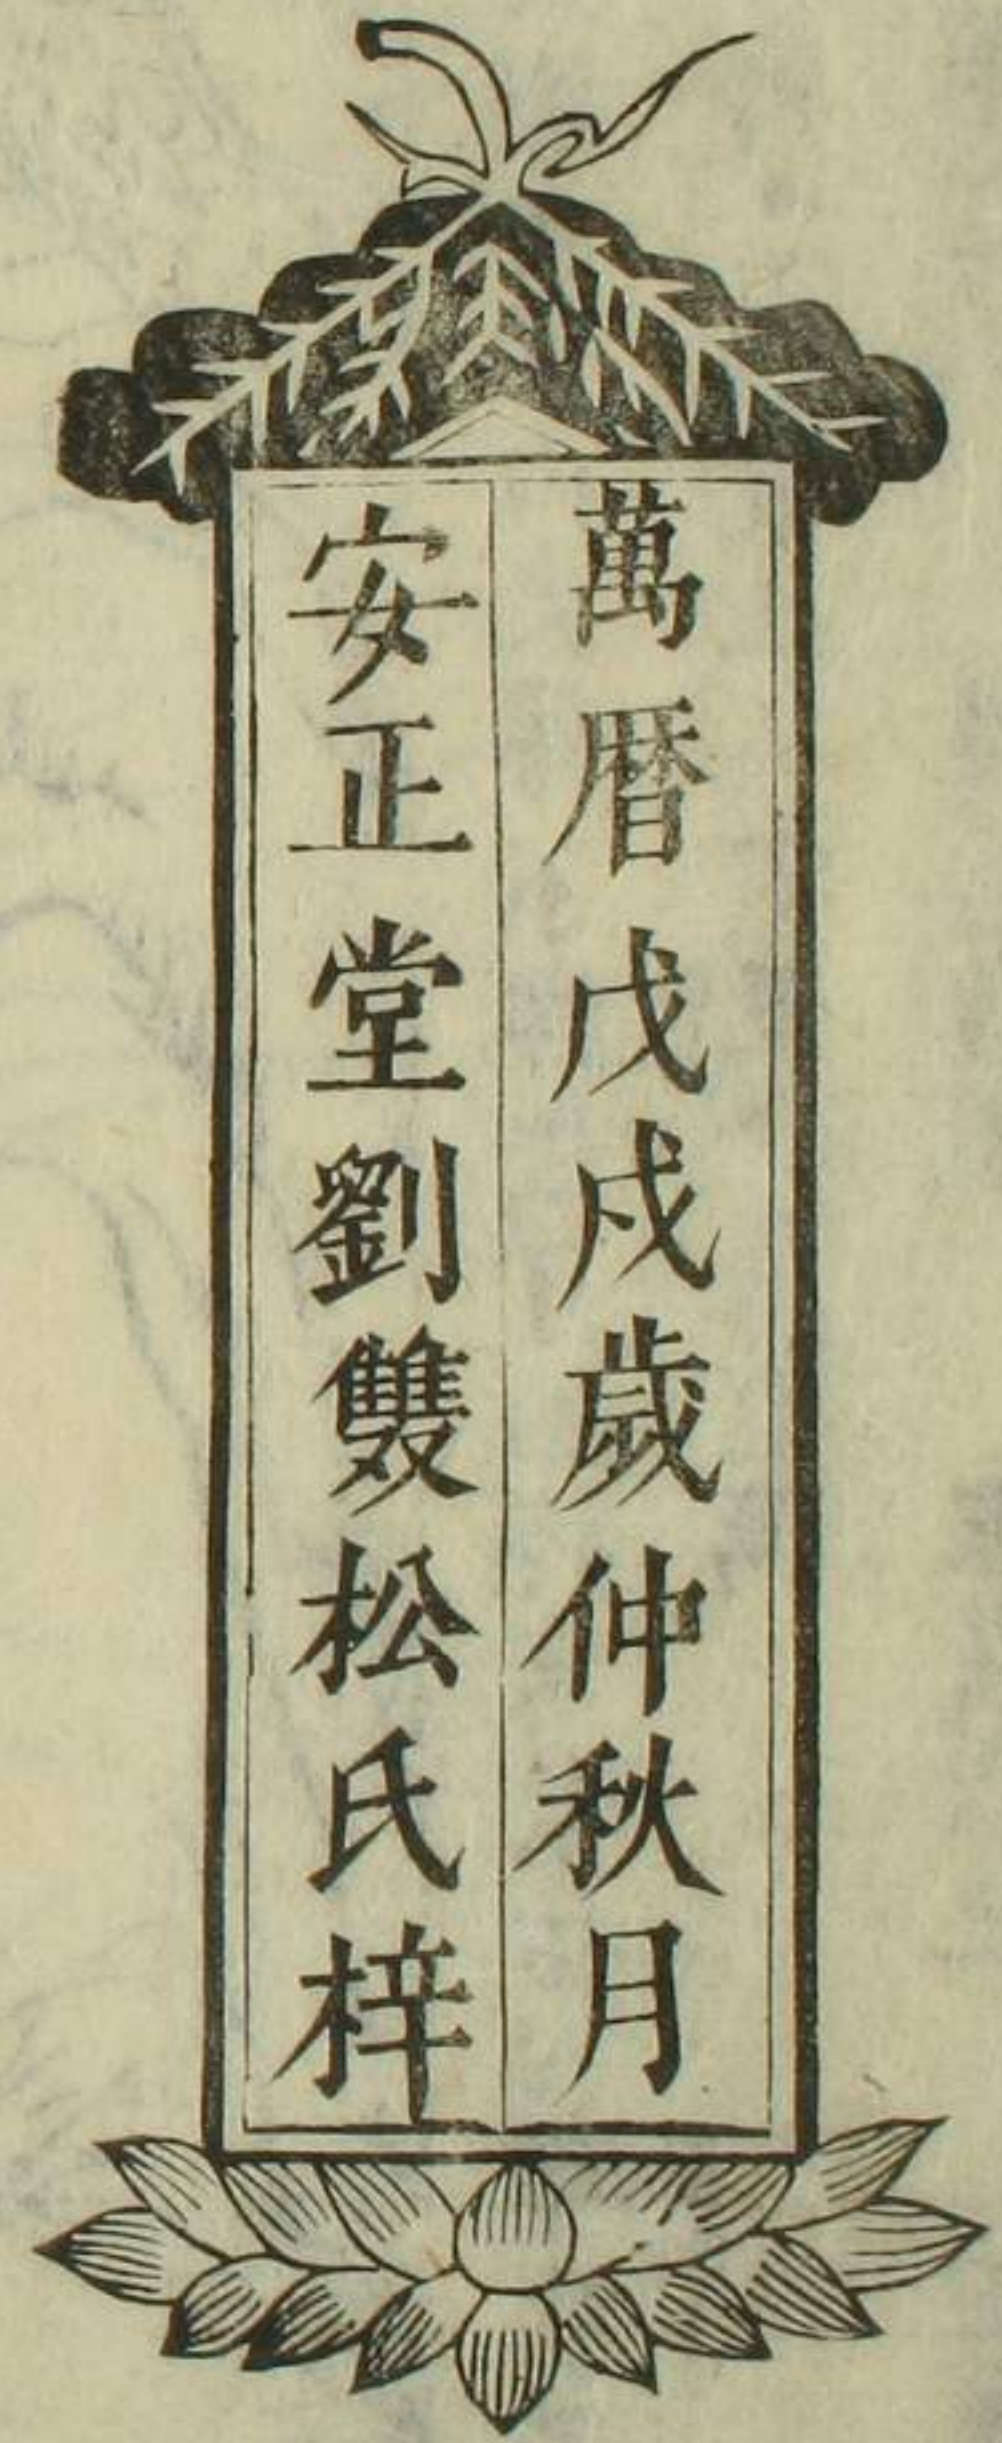 萬曆戊戌歲仲秋月
安正堂劉雙松氏梓